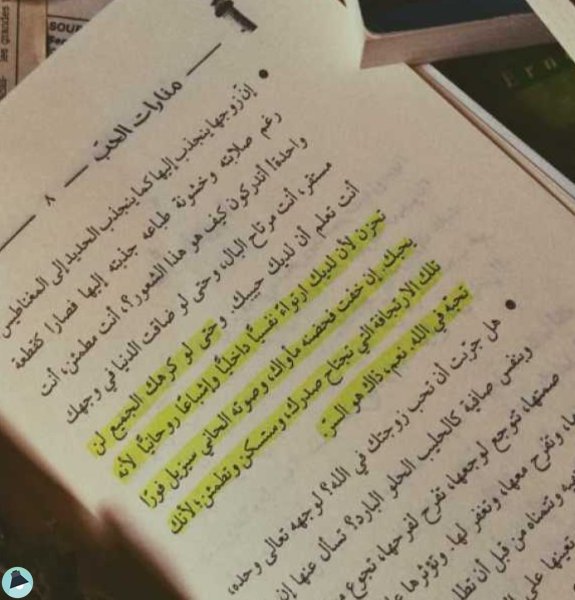 SOUP
les grandes
Ern
منارات الحب
٨
إن زوجها ينجذب إليها كما ينجذب الحديد إلى المغناطيس
رغم صلابته وخشونة طباعه جذبته إليها فصارا كقطعة
واحدة! أتدركون كيف هو هذا الشعور؟، أنت مطمئن، أنت
مستقر، أنت مرتاح البال، وحتى لو ضاقت الدنيا في وجهك
أنت تعلم أن لديك حبيبك. وحتى لو كرهك الجميع لن
تحزن لأن لديك ارتواءً نفسيًا داخليًا وإشباعًا روحانيًا لأنه
يحبك. إن خفت فحضنه مأواك، وصوته الحاني سيزيل فورًا
تلك الارتجافة التي تجتاح صدرك، وستسكن وتطمئن؛ لأنك
تحبه في الله. نعم، ذاك هو السر.
هل جربت أن تحب زوجتك في الله؟ لوجهه تعالى وحده،
وبنفس صافية كالحليب الحلو البارد؟ تسأل عنها إن
صمتها، تتوجع لوجعها، تفرح لفرحها، تجوع
وتفرح معها، وتغفر لها. وتؤثرها
وتتمناه من قبل أن تطلب
تعينها على